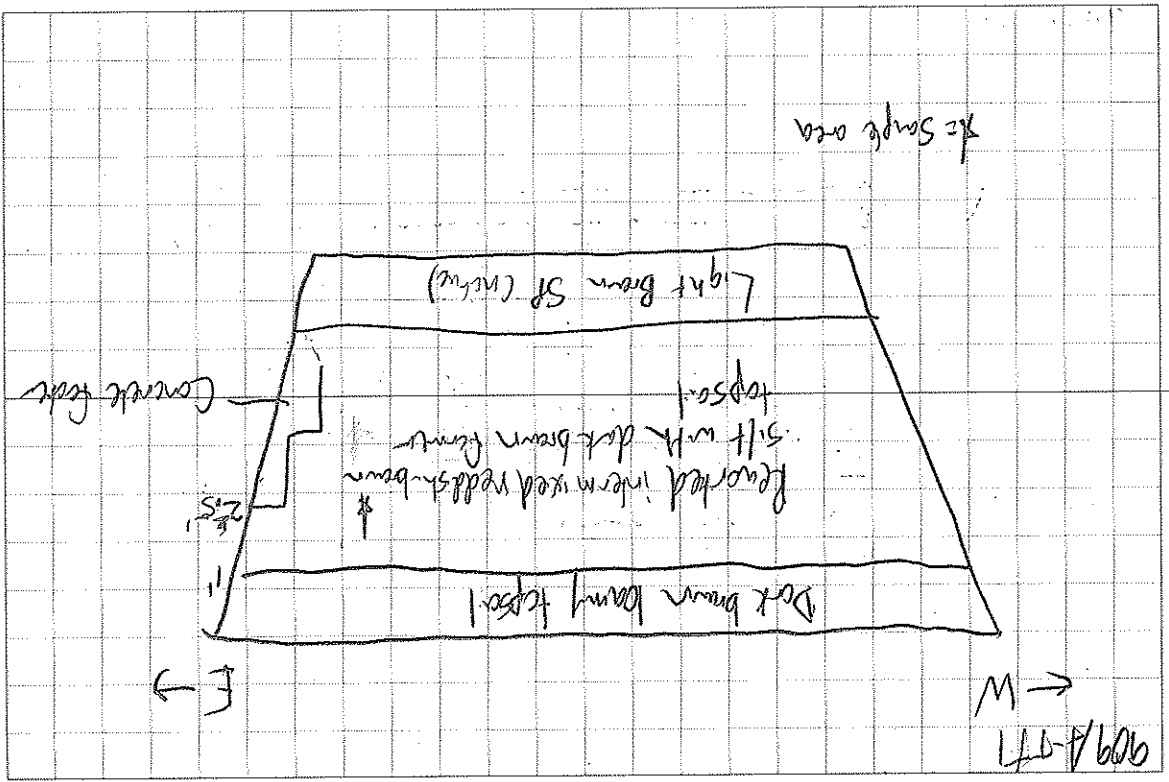 ← W
E →
Dark brown loamy topsoil
1'
*
Reworked intermixed reddish brown
silt with dark brown
topsoil
Concrete
Light Brown SP (native)
* = Sample area